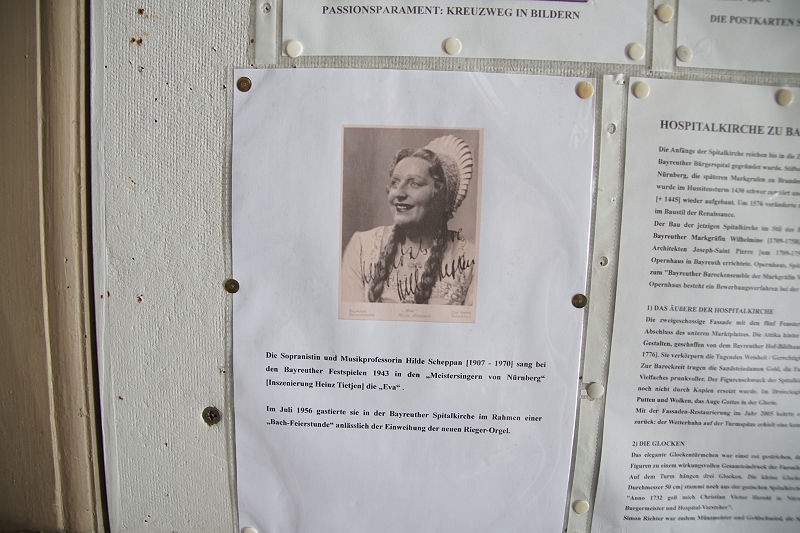 PASSIONSPARAMENT: KREUZWEG IN BILDERN
DIE POSTKARTEN S
Die Sopranistin und Musikprofessorin Hilde Scheppan [1907 - 1970] sang bei
den Bayreuther Festspielen 1943 in den „Meistersingern von Nürnberg"
[Inszenierung Heinz Tietjen] die „Eva" .
Im Juli 1956 gastierte sie in der Bayreuther Spitalkirche im Rahmen einer
„Bach-Feierstunde" anlässlich der Einweihung der neuen Rieger-Orgel.
HOSPITALKIRCHE ZU BA
Die Anfänge der Spitalkirche reichen bis in die
Bayreuther Bürgerspital gegründet wurde.
Nürnberg, die späteren Markgrafen zu
wurde im Hussitensturm 1430 schwer
[+ 1445] wieder aufgebaut. Um 1576
im Baustil der Renaissance.
Der Bau der jetzigen Spitalkirche im Stil des
Bayreuther Markgräfin Wilhelmine
Architekten Joseph-Saint Pierre
Opernhaus in Bayreuth errichtete. Opernhaus,
zum "Bayreuther Barockensemble der Markgräfin
Opernhaus besteht ein Bewerbungsverfahren bei der
1) DAS ÄUßERE DER HOSPITALKIRCHE
Die zweigeschossige Fassade mit den fünf
Abschluss des unteren Marktplatzes. Die Attika
Gestalten, geschaffen von dem Bayreuther
1776]. Sie verkörpern die Tugenden Weisheit /
Zur Barockzeit trugen die Sandsteindamen Gold, die
Vielfaches prunkvoller. Der Figurenschmuck der
noch nicht durch Kopien ersetzt wurde. Im
Putten und Wolken, das Auge Gottes in der Glorie.
Mit der Fassaden-Restaurierung im Jahr 2005
zurück: der Wetterhahn auf der Turmspitze erhielt eine
2) DIE GLOCKEN
Das elegante Glockentürmchen war einst rot gestrichen,
Figuren zu einem wirkungsvollen Gesamteindruck der
Auf dem Turm hängen drei Glocken. Die kleine
Durchmesser 50 cm] stammt noch aus der gotischen
"Anno 1732 goß mich Christian Victor Herold in
Burgermeister und Hospital-Vorsteher".
Simon Richter war zudem Münzmeister und Goldschmied, die